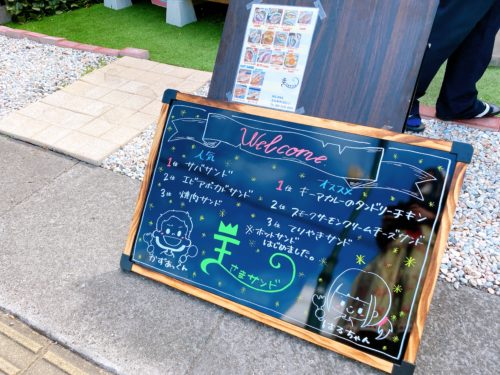 Welcome
人気
1位 サバサンド
2位 エビアボカドサンド
3位 焼肉サンド
オススメ
1位 キーマカレーのタンドリーチキン
2位 スモークサーモンクリームチーズサンド
3位 てりやきサンド
※ホットサンド
はじめました。
王さまサンド
かずあっくん
はるちゃん